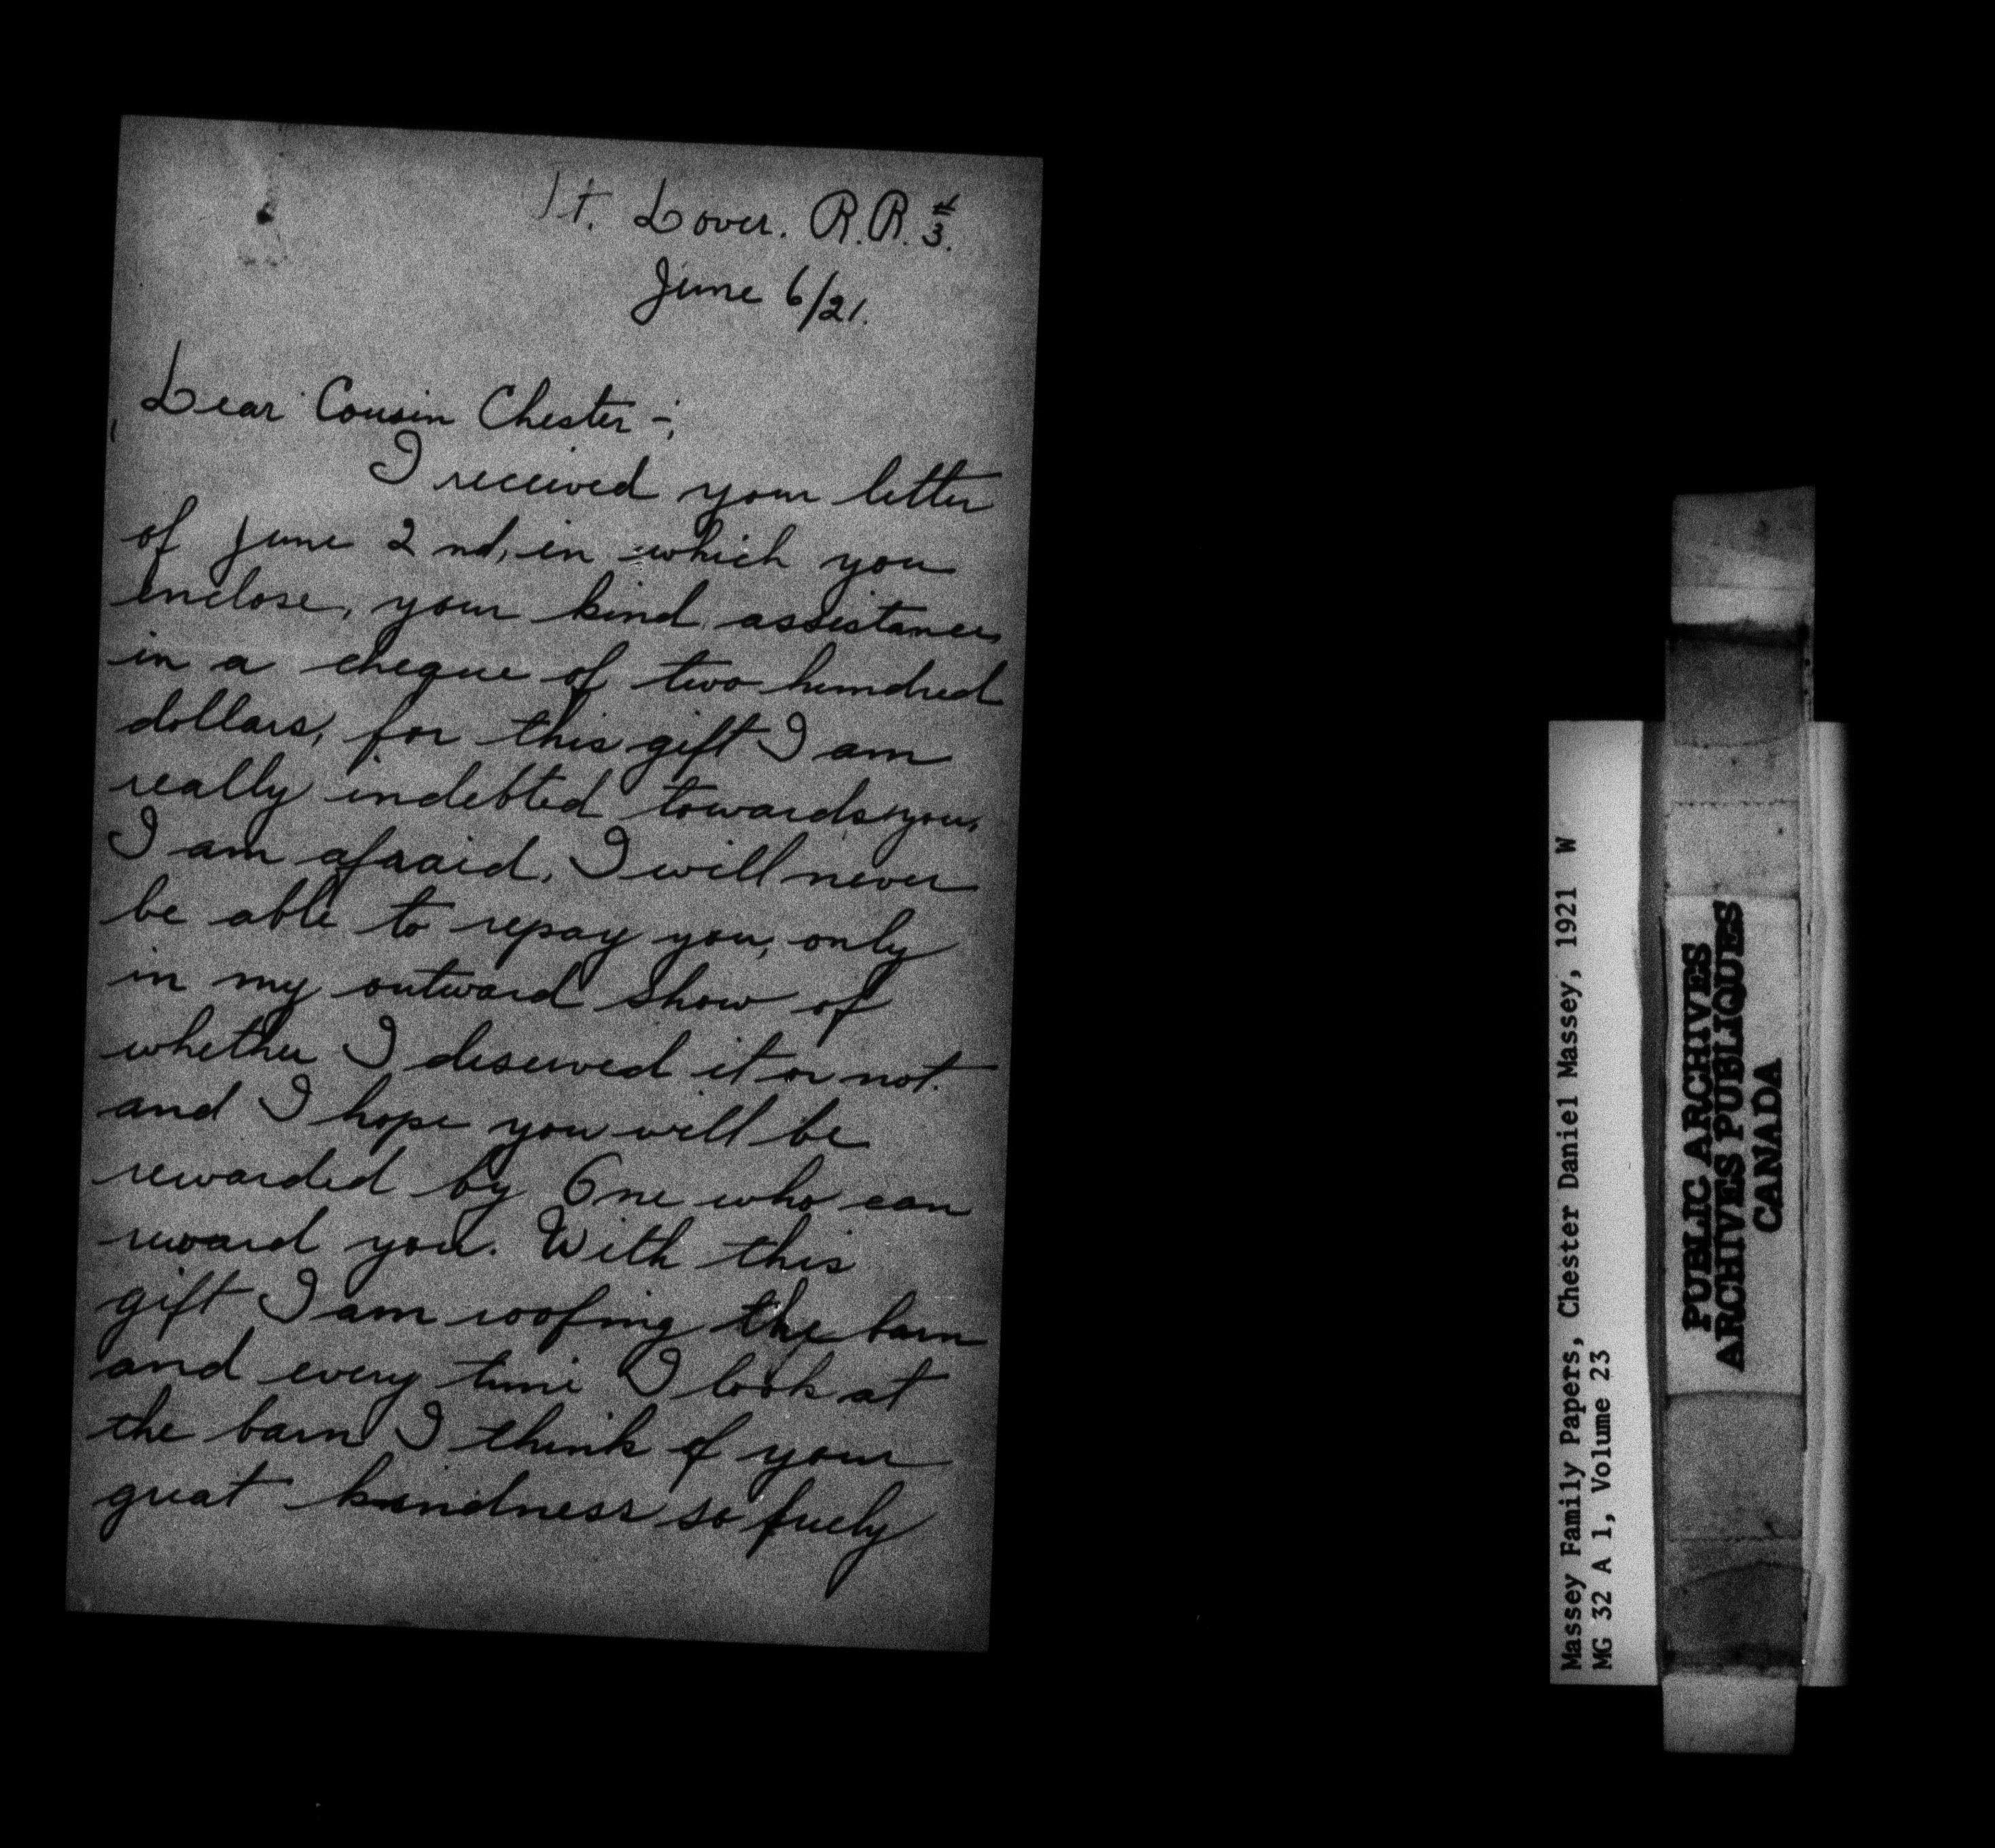 Pt. Dover. R.R. #3.
June 6/21.
Dear Cousin Chester -;
I received your letter
of June 2 nd, in which you
enclose, your kind assistance,
in a cheque of two hundred
dollars, for this gift I am
really indebted towards you,
I am afraid, I will never
be able to repay you, only
in my outward show of
whether I deserved it or not.
and I hope you will be
rewarded by One who can
reward you. With this
gift I am roofing the barn
and every time I look at
the barn I think of your
great kindness so freely
Massey Family Papers, Chester Daniel Massey, 1921 W
MG 32 A 1, Volume 23
PUBLIC ARCHIVES
ARCHIVES PUBLIQUES
CANADA